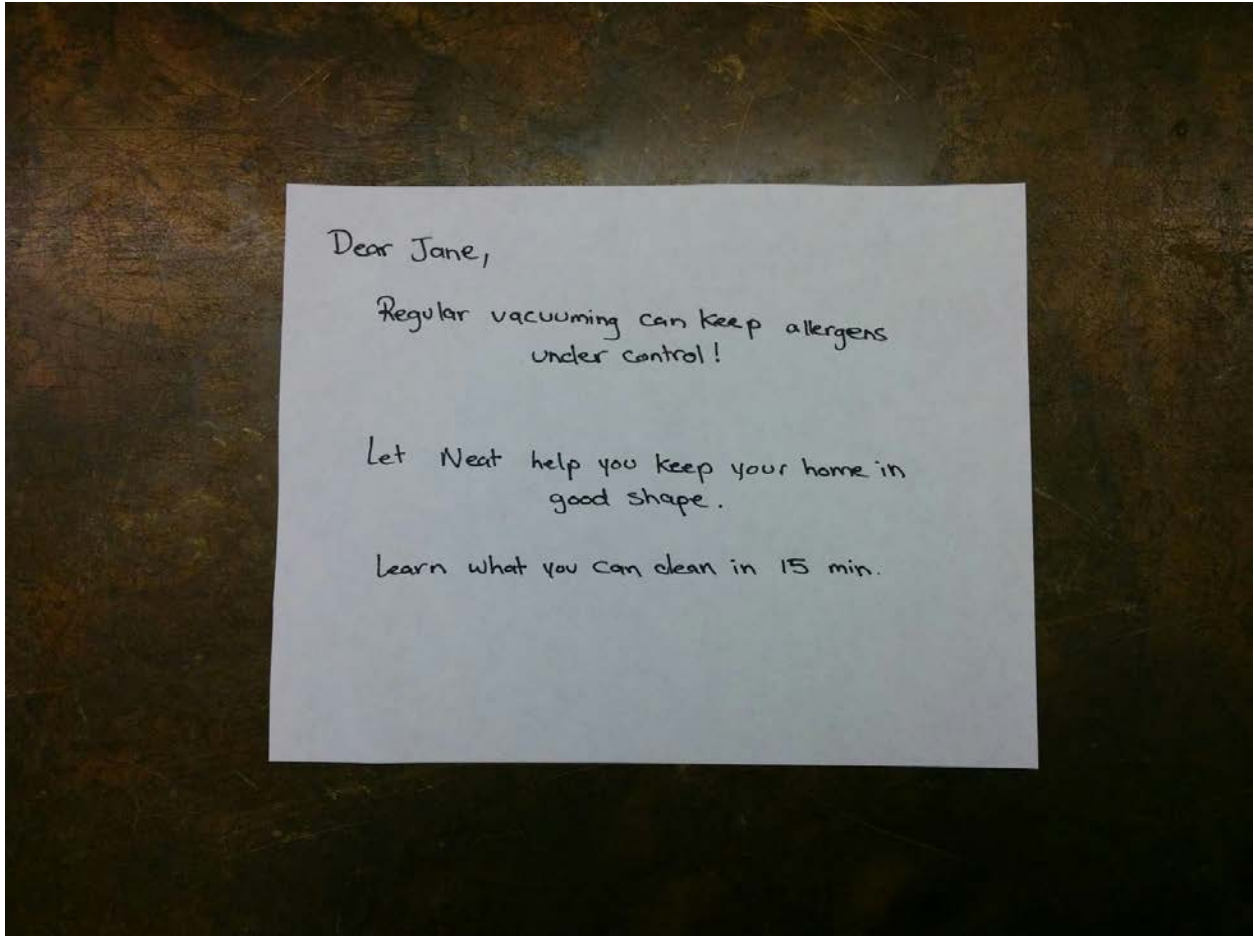 Dear Jane,
Regular vacuuming can keep allergens
under control!
Let Neat help you keep your home in
good shape.
Learn what you can clean in 15 min.